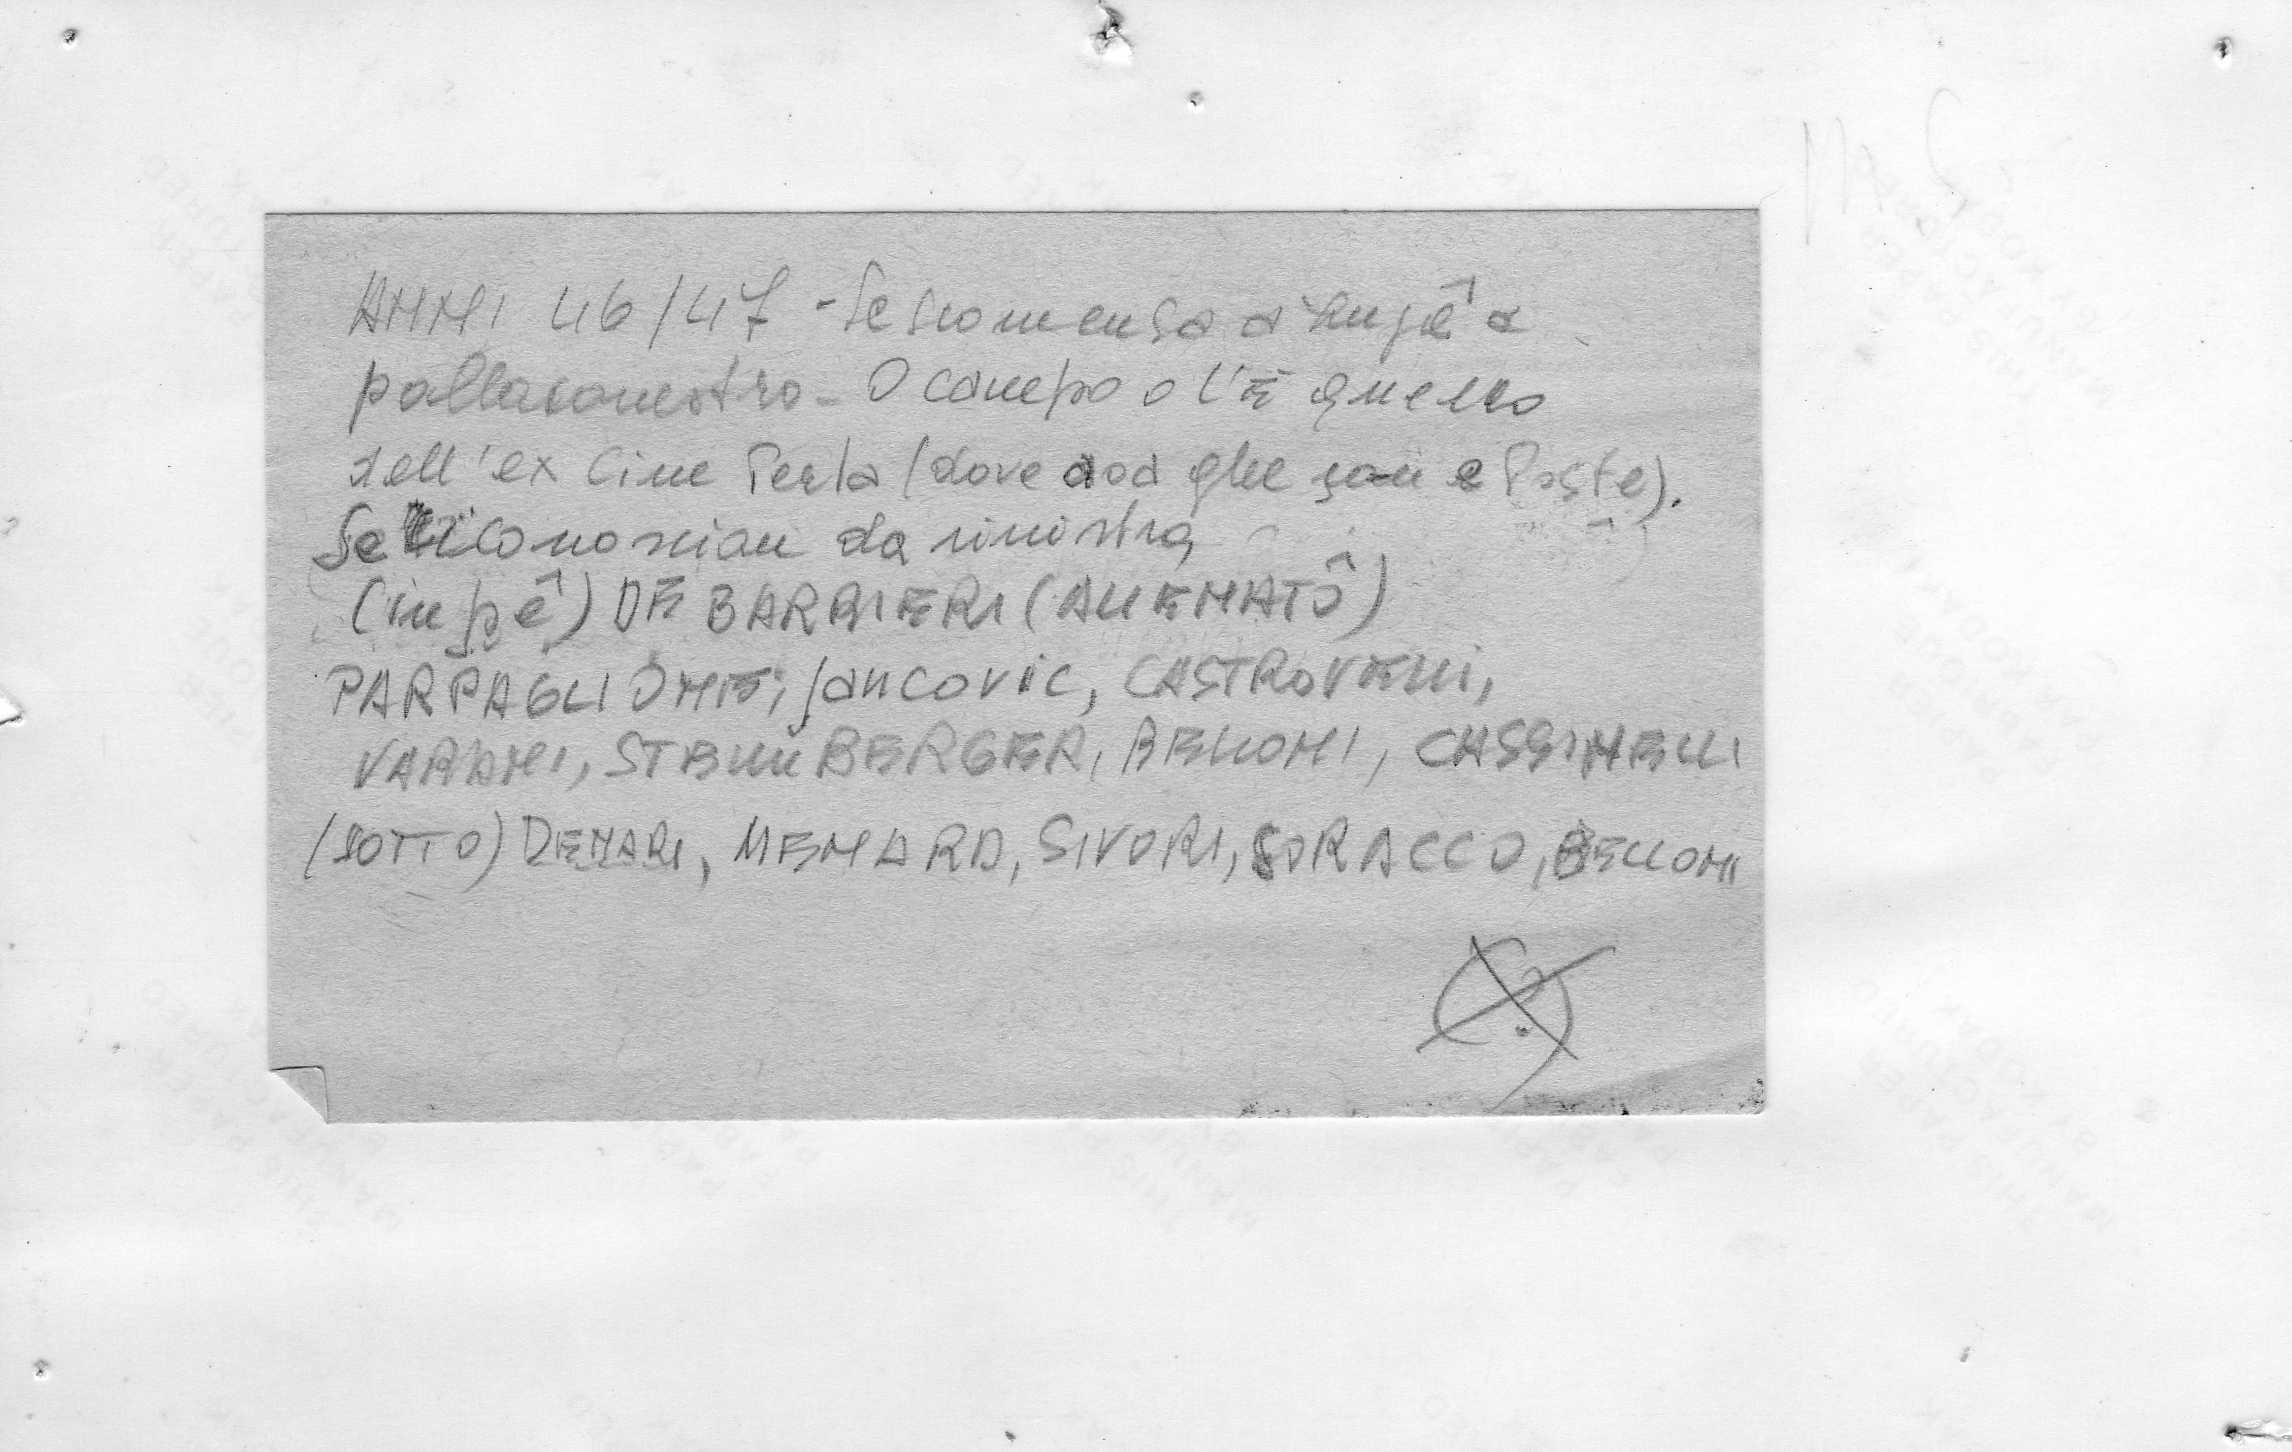 ANNI 46/47 - Se scomensa a zugâ a
pallacanestro - O campo o l'È quello
dell'ex Cine Perla (dove aoa ghe son e Poste).
Se riconoscian da sinistra
(in pê) DE BARBIERI (ALLENATÔ)
PARPAGLIONE, Jancovic, CASTROVELLI,
VARANI, STERNBERGER, BELLONI, CASSINELLI
(SOTTO) DEMARI, MENARD, SIVORI, SORACCO, BELLONI